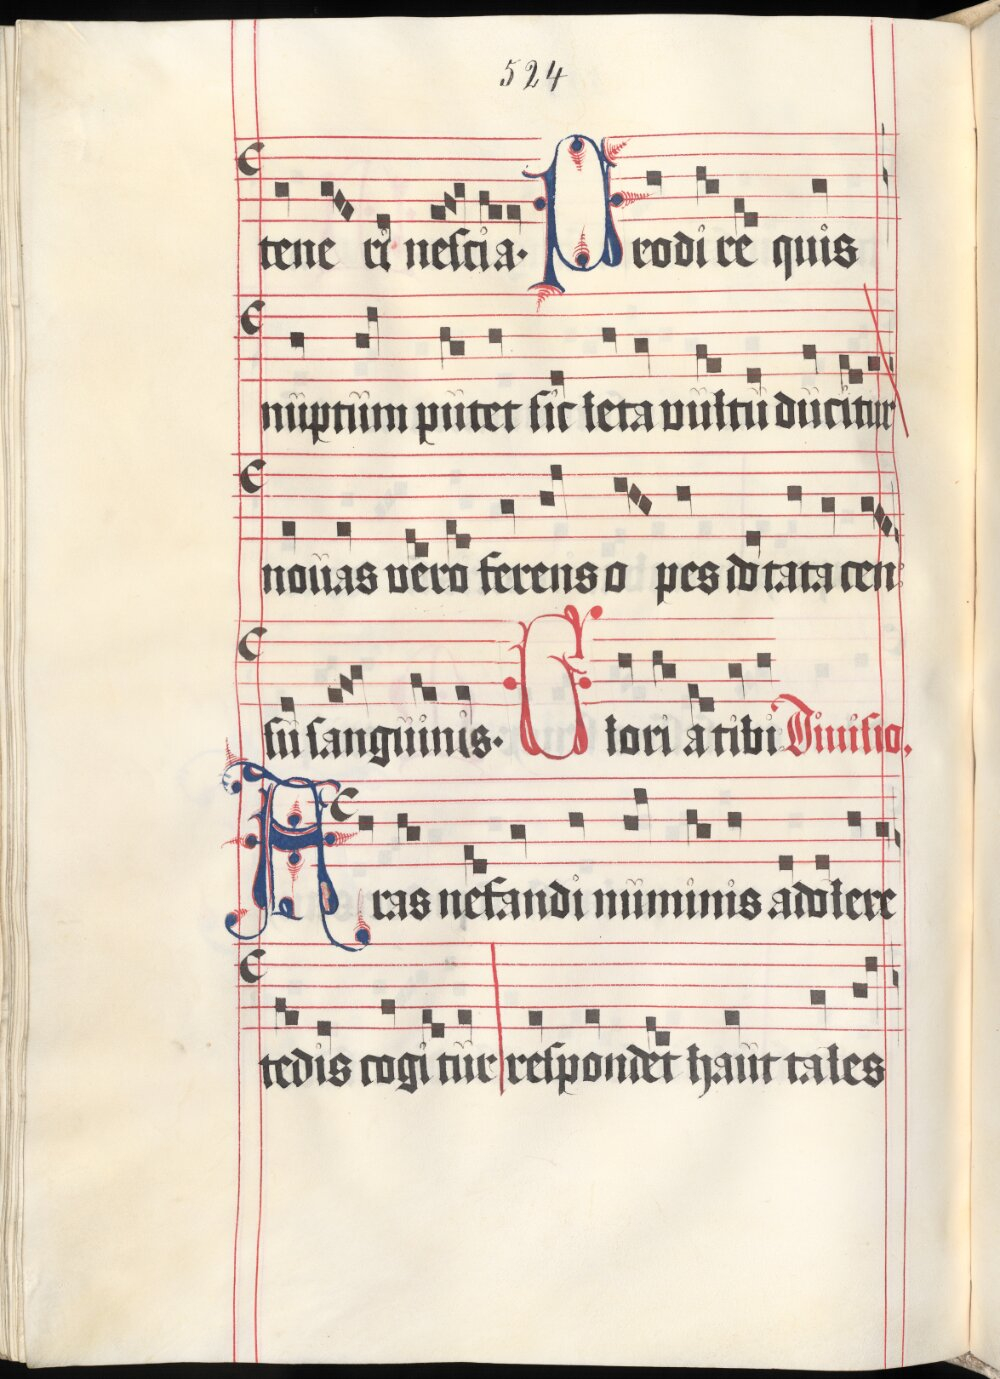 524
tene ri nescia. Prodire quis
nuptum putet sic leta vultu ducitur
novas vero ferens o pes dotata cen
su sanguinis. Glori a tibi Divisio.
Aras nefandi numinis adolere
tedis cogitur respondet haut tales